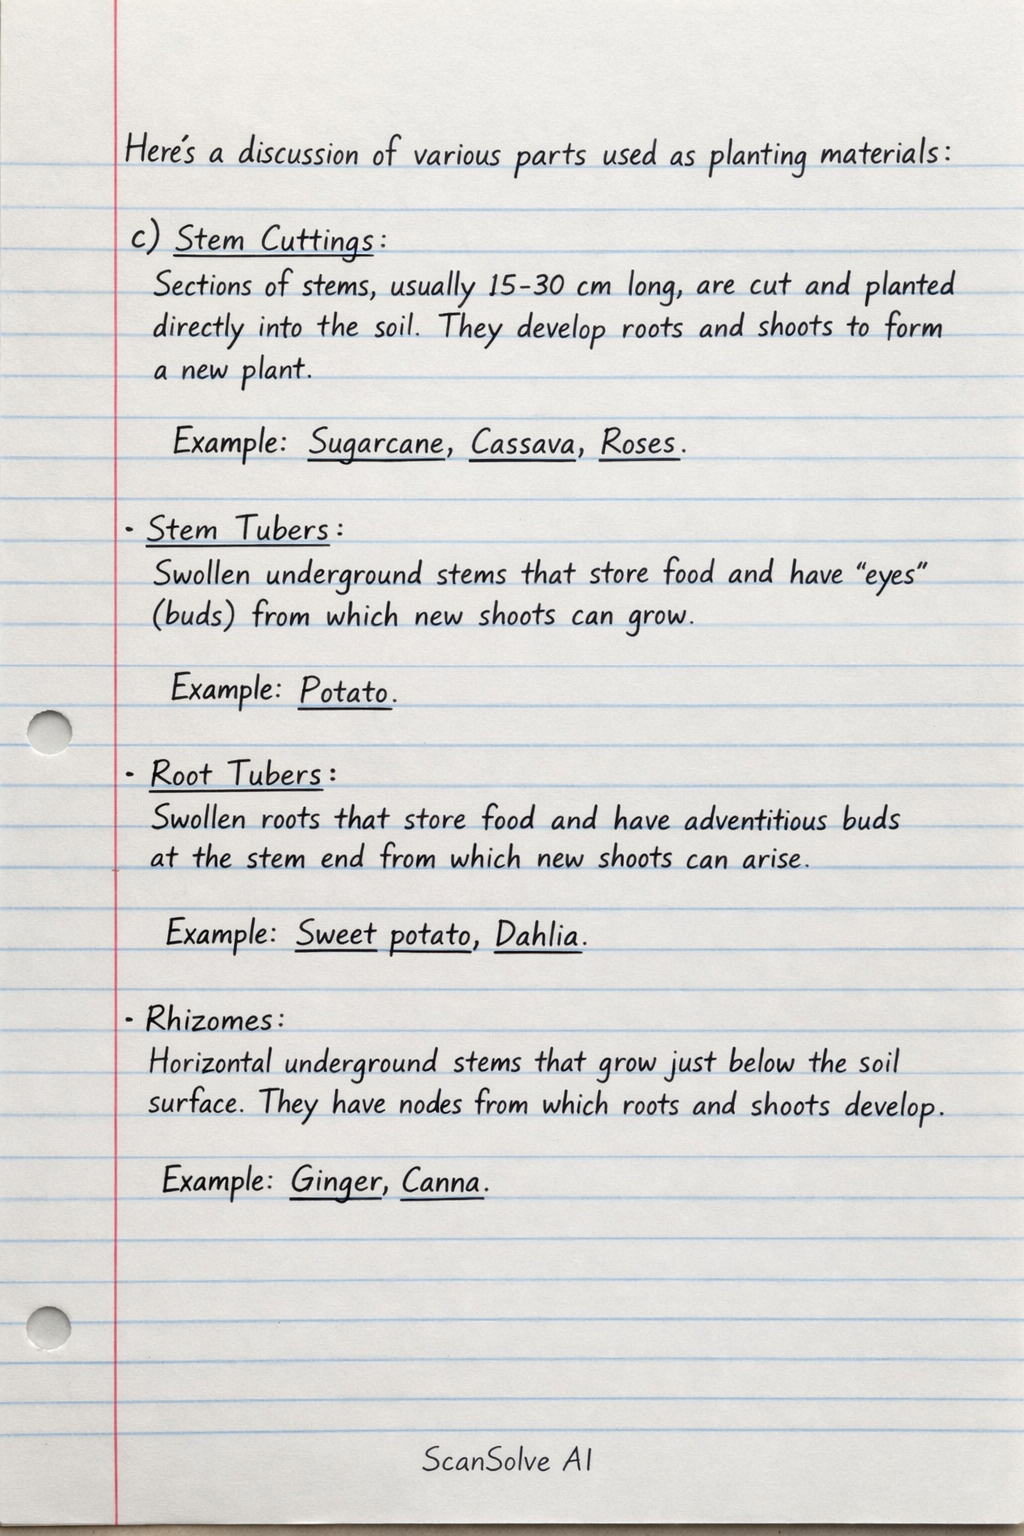 Here's a discussion of various parts used as planting materials:
c) Stem Cuttings:
Sections of stems, usually 15-30 cm long, are cut and planted
directly into the soil. They develop roots and shoots to form
a new plant.
Example: Sugarcane, Cassava, Roses.
· Stem Tubers:
Swollen underground stems that store food and have “eyes”
(buds) from which new shoots can grow.
Example: Potato.
· Root Tubers:
Swollen roots that store food and have adventitious buds
at the stem end from which new shoots can arise.
Example: Sweet potato, Dahlia.
· Rhizomes:
Horizontal underground stems that grow just below the soil
surface. They have nodes from which roots and shoots develop.
Example: Ginger, Canna.
ScanSolve AI